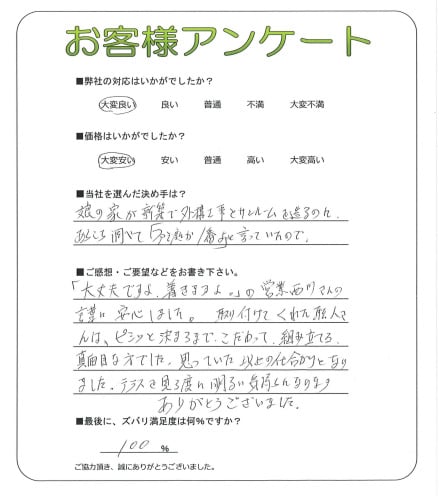 お客様アンケート
■弊社の対応はいかがでしたか？
大変良い 良い 普通 不満 大変不満
■価格はいかがでしたか？
大変安い 安い 普通 高い 大変高い
■当社を選んだ決め手は？
娘の家が新築で外構工事とサンルームを造るのに、
あちこち調べて「 が1番よ」と言っていたので。
■ご感想・ご要望などをお書き下さい。
「大丈夫ですよ、着きますよ。」の営業西川さんの
言葉に安心しました。 取り付けてくれた職人さ
んは、ピシッと決まるまで、こだわって、組み立てる
真面目な方でした。思っていた以上の仕上がりとなり
ました。テラスを見る度に明るい気持ちになります
ありがとうございました。
■最後に、ズバリ満足度は何％ですか？
100 ％
ご協力頂き、誠にありがとうございました。